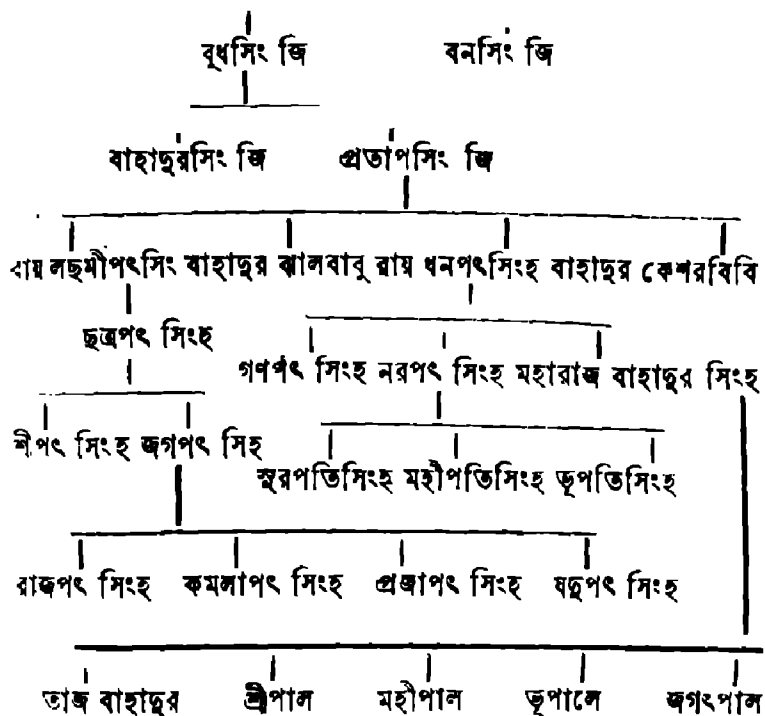 বুধসিং জি বনসিং জি
বাহাদুরসিং জি প্রতাপসিং জি
রায় লছমীপৎসিং বাহাদুর ঝালবাবু রায় ধনপৎসিংহ বাহাদুর কেশরবিবি
ছত্রপৎ সিংহ
গণপৎ সিংহ নরপৎ সিংহ মহারাজ বাহাদুর সিংহ
শ্রীপৎ সিংহ জগপৎ সিহ
সুরপতিসিংহ মহীপতিসিংহ ভূপতিসিংহ
রাজপৎ সিংহ কমলাপৎ সিংহ প্রজাপৎ সিংহ যদুপৎ সিংহ
তাজ বাহাদুর শ্রীপাল মহীপাল ভূপালে জগৎপাল